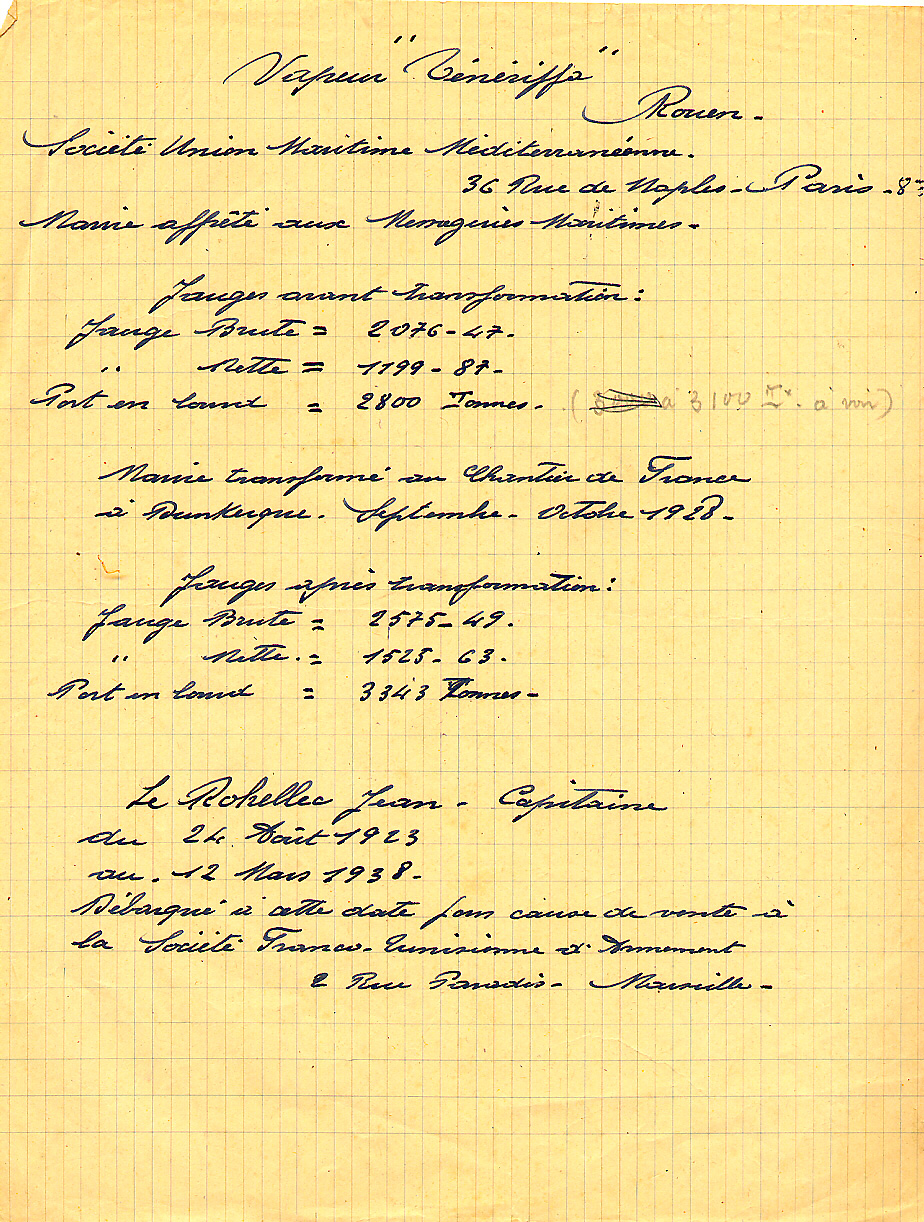 Vapeur "Ténériffa"
Rouen.
Société Union Maritime Méditerranéenne.
36 Rue de Naples. Paris - 8me
Navire affrêté aux Messageries Maritimes.
Jauges avant transformation :
Jauge Brute = 2076-47.
" Nette = 1199-87.
Port en lourd = 2800 Tonnes. ( à 3100 Tx. à voir)
Navire transformé au Chantier de France
à Dunkerque. Septembre - Octobre 1928.
Jauges après transformation :
Jauge Brute = 2575-49.
" Nette. = 1525-63.
Port en lourd = 3343 Tonnes-
Le Rohellec Jean - Capitaine
du 24 Août 1923
au. 12 Mars 1938.
Débarqué à cette date pour cause de vente à
la Société Franco-Tunisienne d'Armement
2 Rue Paradis - Marseille -